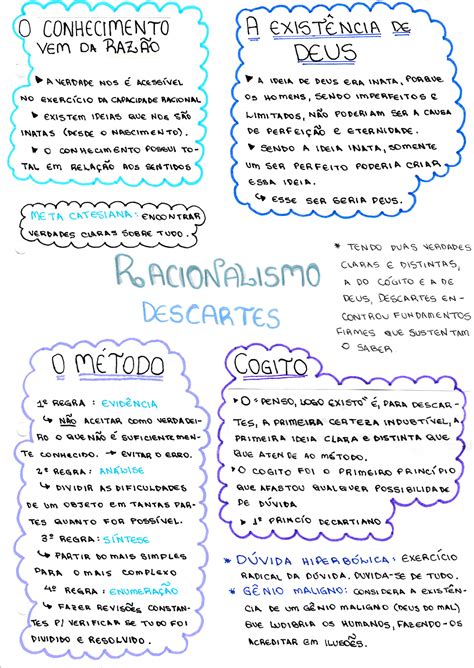 O CONHECIMENTO
VEM DA RAZÃO
▶ A VERDADE NOS É ACESSÍVEL
NO EXERCÍCIO DA CAPACIDADE RACIONAL
▶ EXISTEM IDEIAS QUE NOS SÃO
INATAS (DESDE O NASCIMENTO).
▶ O CONHECIMENTO POSSUI TO-
TAL EM RELAÇÃO AOS SENTIDOS
META CATESIANA: ENCONTRAR
VERDADES CLARAS SOBRE TUDO.
A EXISTÊNCIA DE
DEUS
▶ A IDEIA DE DEUS ERA INATA, PORQUE
OS HOMENS, SENDO IMPERFEITOS E
LIMITADOS, NÃO PODERIAM SER A CAUSA
DE PERFEIÇÃO E ETERNIDADE.
▶ SENDO A IDEIA INATA, SOMENTE
UM SER PERFEITO PODERIA CRIAR
ESSA IDEIA.
↳ ESSE SER SERIA DEUS.
* TENDO DUAS VERDADES
CLARAS E DISTINTAS,
A DO CÓGITO E A DE
DEUS, DESCARTES EN-
CONTROU FUNDAMENTOS
FIRMES QUE SUSTENTAM
O SABER
RACIONALISMO
DESCARTES
O MÉTODO
1ª REGRA: EVIDÊNCIA
↳ NÃO ACEITAR COMO VERDADEI-
RO O QUE NÃO É SUFICIENTEMEN-
TE CONHECIDO. → EVITAR O ERRO.
2ª REGRA: ANÁLISE
↳ DIVIDIR AS DIFICULDADES
DE UM OBJETO EM TANTAS PAR-
TES QUANTO FOR POSSÍVEL.
3ª REGRA: SÍNTESE
↳ PARTIR DO MAIS SIMPLES
PARA O MAIS COMPLEXO
4ª REGRA: ENUMERAÇÃO
↳ FAZER REVISÕES CONSTAN-
TES P/ VERIFICAR SE TUDO FOI
DIVIDIDO E RESOLVIDO.
COGITO
▶ O "PENSO, LOGO EXISTO" É, PARA DESCAR-
TES, A PRIMEIRA CERTEZA INDUBITÍVEL, A
PRIMEIRA IDEIA CLARA E DISTINTA QUE
QUE ATENDE AO MÉTODO.
▶ O COGITO FOI O PRIMEIRO PRINCÍPIO
QUE AFASTOU QUALQUER POSSIBILIDADE
DE DÚVIDA
▶ 1º PRINCÍO DECARTIANO
* DÚVIDA HIPERBÓNICA: EXERCÍCIO
RADICAL DA DÚVIDA. DUVIDA-SE DE TUDO.
* GÊNIO MALIGNO: CONSIDERA A EXISTÊN-
CIA DE UM GÊNIO MALIGNO (DEUS DO MAL)
QUE LUDIBRIA OS HUMANOS, FAZENDO-OS
ACREDITAR EM ILUSÕES.